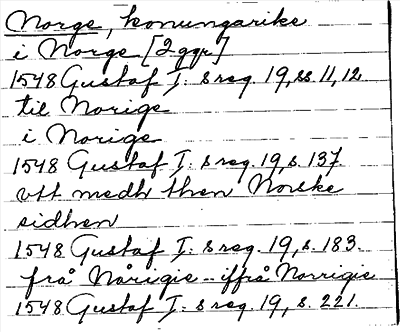 Norge, konungarike
i Norge [2 ggr]
1548 Gustaf I: s reg. 19, ss. 11, 12.
til Norige
i Norige
1548 Gustaf I: s reg. 19, s. 137.
vtt medh then Norske
sidhen
1548 Gustaf I: s reg. 19, s. 183.
frå Nårigie - iffrå Norrigie
1548 Gustaf I: s reg. 19, s. 221.